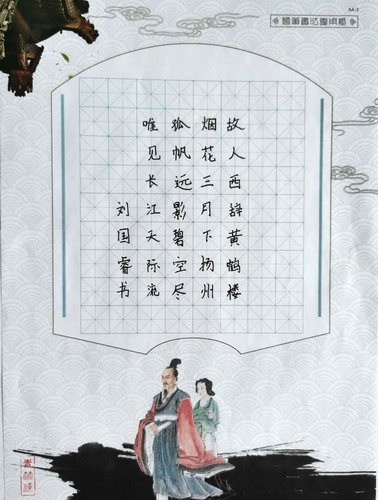 A4-3
故人西辞黄鹤楼
烟花三月下扬州
孤帆远影碧空尽
唯见长江天际流
刘国睿书